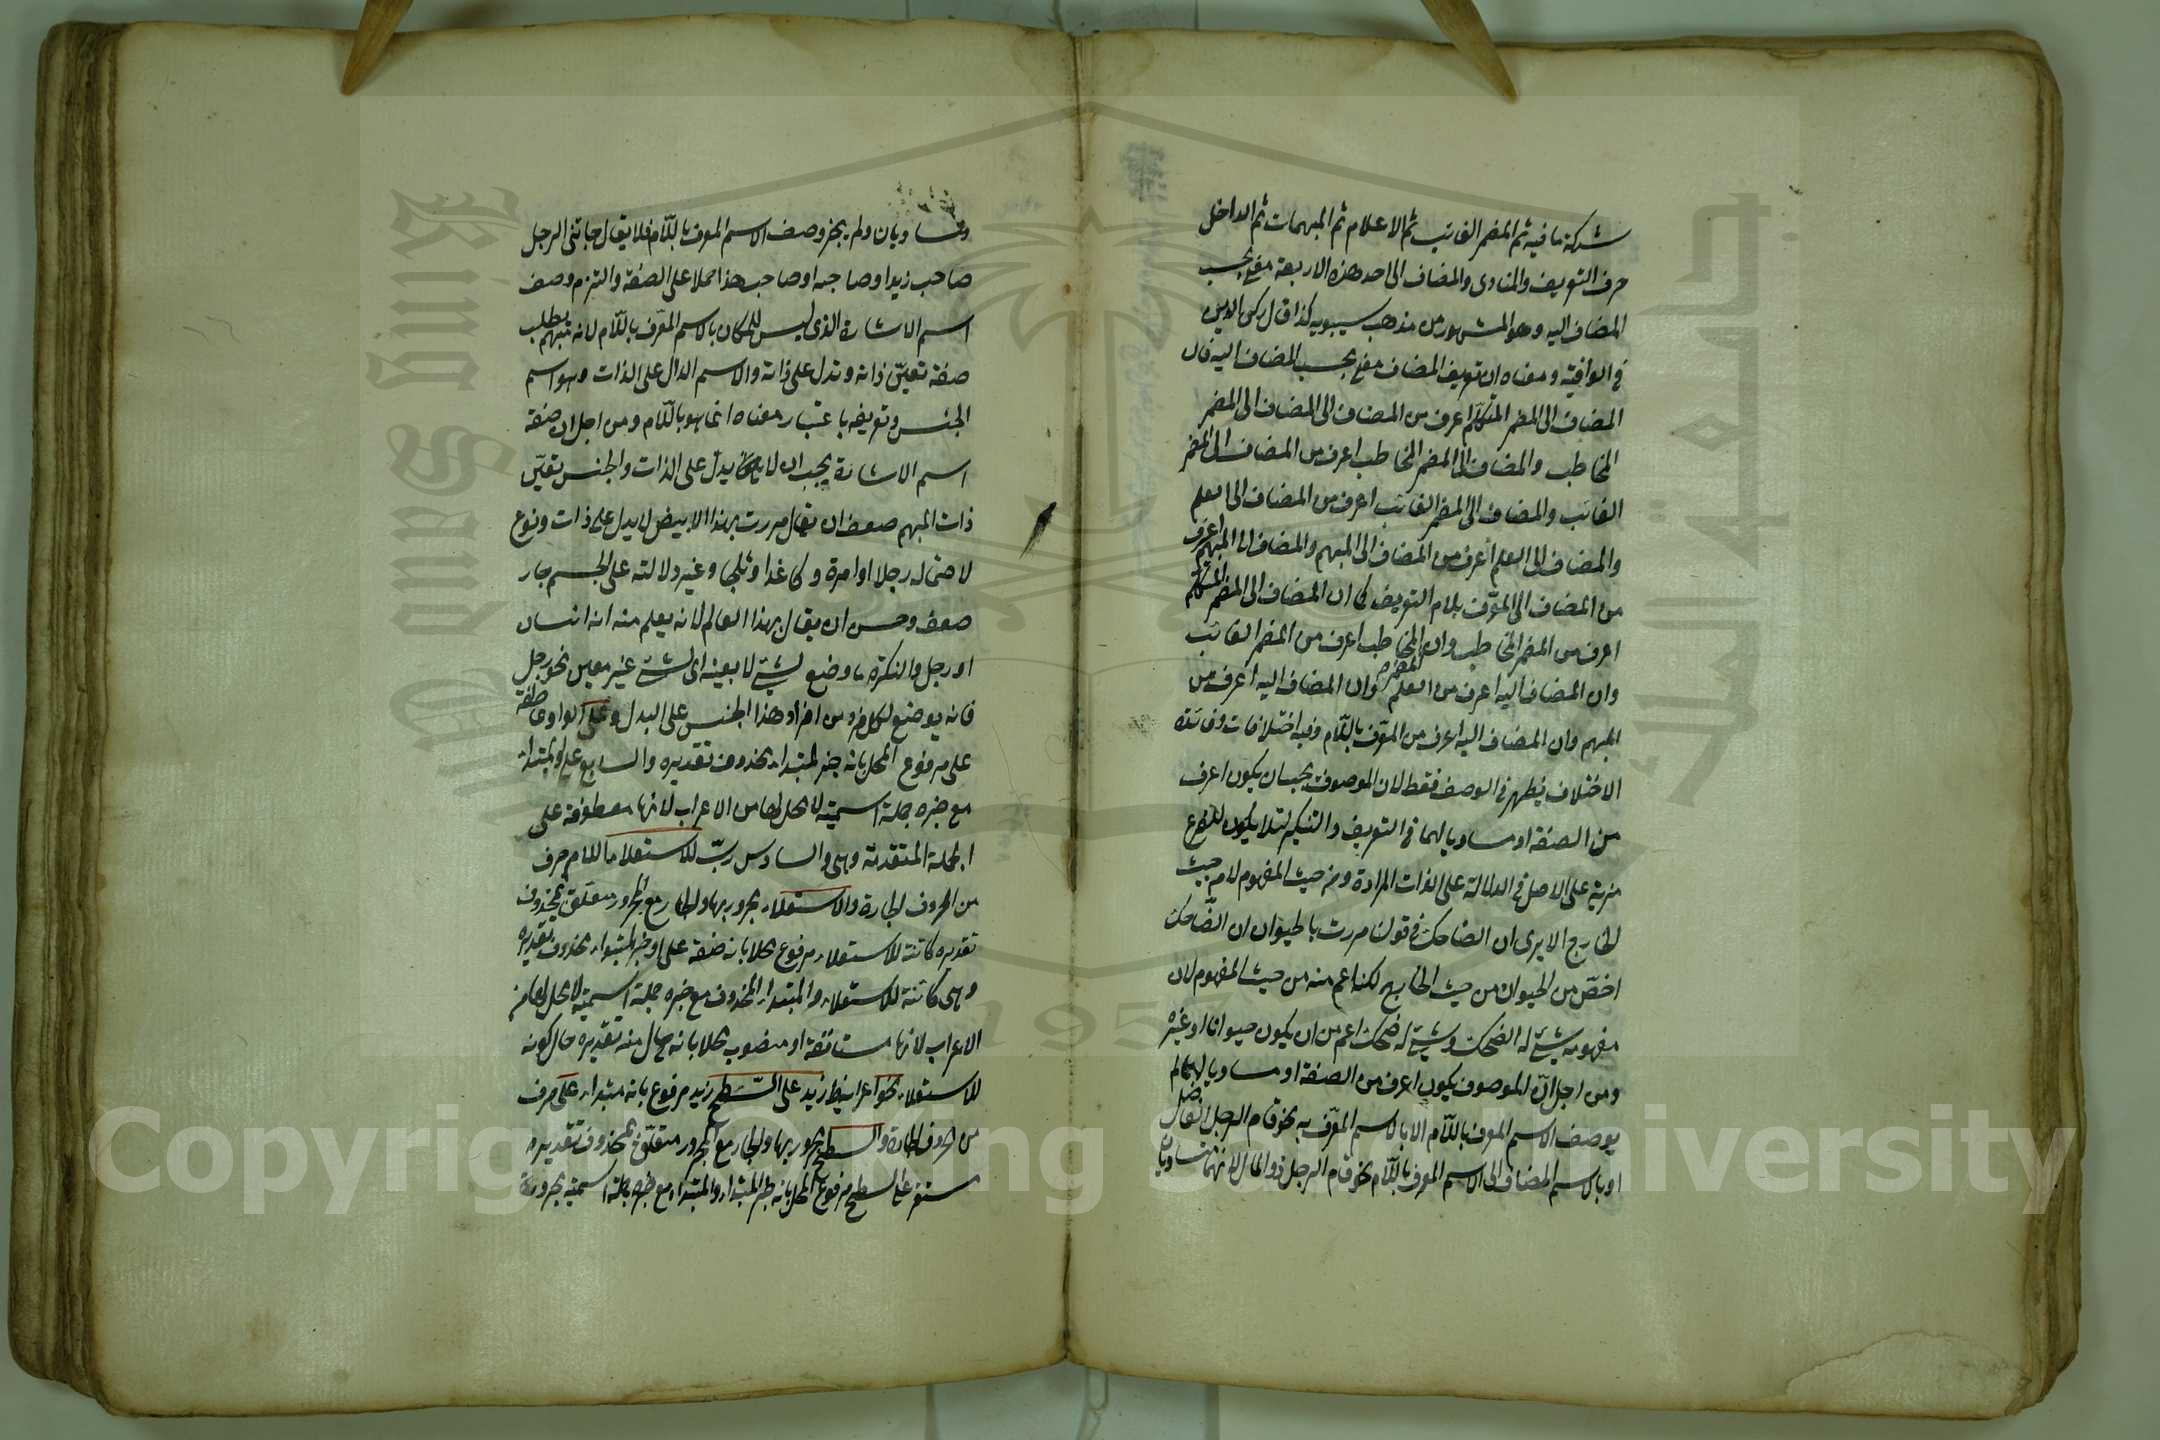 شركة ما فيه ثم المضمر الغائب ثم الاعلام ثم المبهمات ثم الداخل
حرف التعريف والمنادى والمضاف الى احد هذه الاربعة مع بحسب
المضاف اليه وهو المشهور من مذهب سيبويه كذا قال ركن الدين
في الوافية ومعناه ان تعريف المضاف مع بحسب المضاف اليه فان
المضاف الى المضمر المتكلم اعرف من المضاف الى المضاف الى المضمر
المخاطب والمضاف الى المضمر المخاطب اعرف من المضاف الى المضمر
الغائب والمضاف الى المضمر الغائب اعرف من المضاف الى العلم
والمضاف الى العلم اعرف من المضاف الى المبهم والمضاف الى المبهم اعرف
من المضاف الى المعرف بلام التعريف كما ان المضاف الى المضمر المتكلم
اعرف من المضمر المخاطب وان المخاطب اعرف من المضمر الغائب
وان المضاف اليه المضمر اعرف من العلم وان المضاف اليه اعرف من
المبهم وان المضاف اليه اعرف من المعرف باللام وفيه اختلافات وفائدة
الاختلاف يظهر في الوصف فقط لان الموصوف يجب ان يكون اعرف
من الصفة او مساويا لها في التعريف والتنكير لئلا يكون للفرع
مزية على الاصل في الدلالة على الذات المرادة من حيث المفهوم لا من حيث
الخارج الا يرى ان الضاحك في قولنا مررت بالحيوان ان الضاحك
اخص من الحيوان من حيث الخارج لكنه اعم منه من حيث المفهوم لان
مفهومه شيء له الضحك وشيء له ضحك اعم من ان يكون حيوانا او غيره
ومن اجل ان الموصوف يكون اعرف من الصفة او مساويا لها لم
يوصف الاسم المعرف باللام الا بالاسم المعرف به نحو قام الرجل الفاضل
او بالاسم المضاف الى الاسم المعرف باللام نحو قام الرجل ذو المال لانهما متساويان
متساويان ولم يجز وصف الاسم المعرف باللام فلا يقال جاءني الرجل
صاحب زيد او صاحبه او صاحب هذا حملا على الصفة والتزم وصف
اسم الاشارة الذي ليس للمكان بالاسم المعرف باللام لانه مبهم يطلب
صفة تعين ذاته وتدل على ذاته والاسم الدال على الذات وهو اسم
الجنس وتعريفه باعتبار معناه انما هو باللام ومن اجل ان صفة
اسم الاشارة يجب ان يدل على الذات والجنس تعين
ذات المبهم ضعف ان يقال مررت بهذا الابيض لا يدل على ذات ونوع
لاحتماله رجلا او امرة وكاغدا وثلجا وغيره دلالته على الجسم جار
ضعف وحسن ان يقال بهذا العالم لانه يعلم منه انه انسان
او رجل والنكرة ما وضع لشيء لا بعينه اي لشيء غير معين نحو رجل
فانه يوضع لكل فرد من افراد هذا الجنس على البدل وعلى الواو عاطفة
على مرفوع المحل بانه خبر لمبتداء محذوف تقديره والسابع على والمبتداء
مع خبره جملة اسمية لا محل لها من الاعراب لانها معطوفة على
الجملة المتقدمة وهي والسادس رب للاستعلاء اللام حرف
من الحروف الجارة والاستعلاء مجرور بها والجار مع المجرور متعلق بمحذوف
تقديره كائنة للاستعلاء مرفوع محلا بانه صفة على او خبر لمبتداء محذوف تقديره
وهي كائنة للاستعلاء والمبتداء المحذوف مع خبره جملة اسمية لا محل لها من
الاعراب لانها مستانفة او منصوب محلا بانه حال منه تقديره حال كونه
للاستعلاء نحو زيد على السطح زيد مرفوع بانه مبتداء على حرف
من الحروف الجارة والسطح مجرور بها والجار مع المجرور متعلق بمحذوف تقديره
مستقر على السطح مرفوع المحل بانه خبر المبتداء والمبتداء مع خبره جملة اسمية مجرورة
Copyright © King Saud University
King Saud University
جامعة الملك سعود
1957